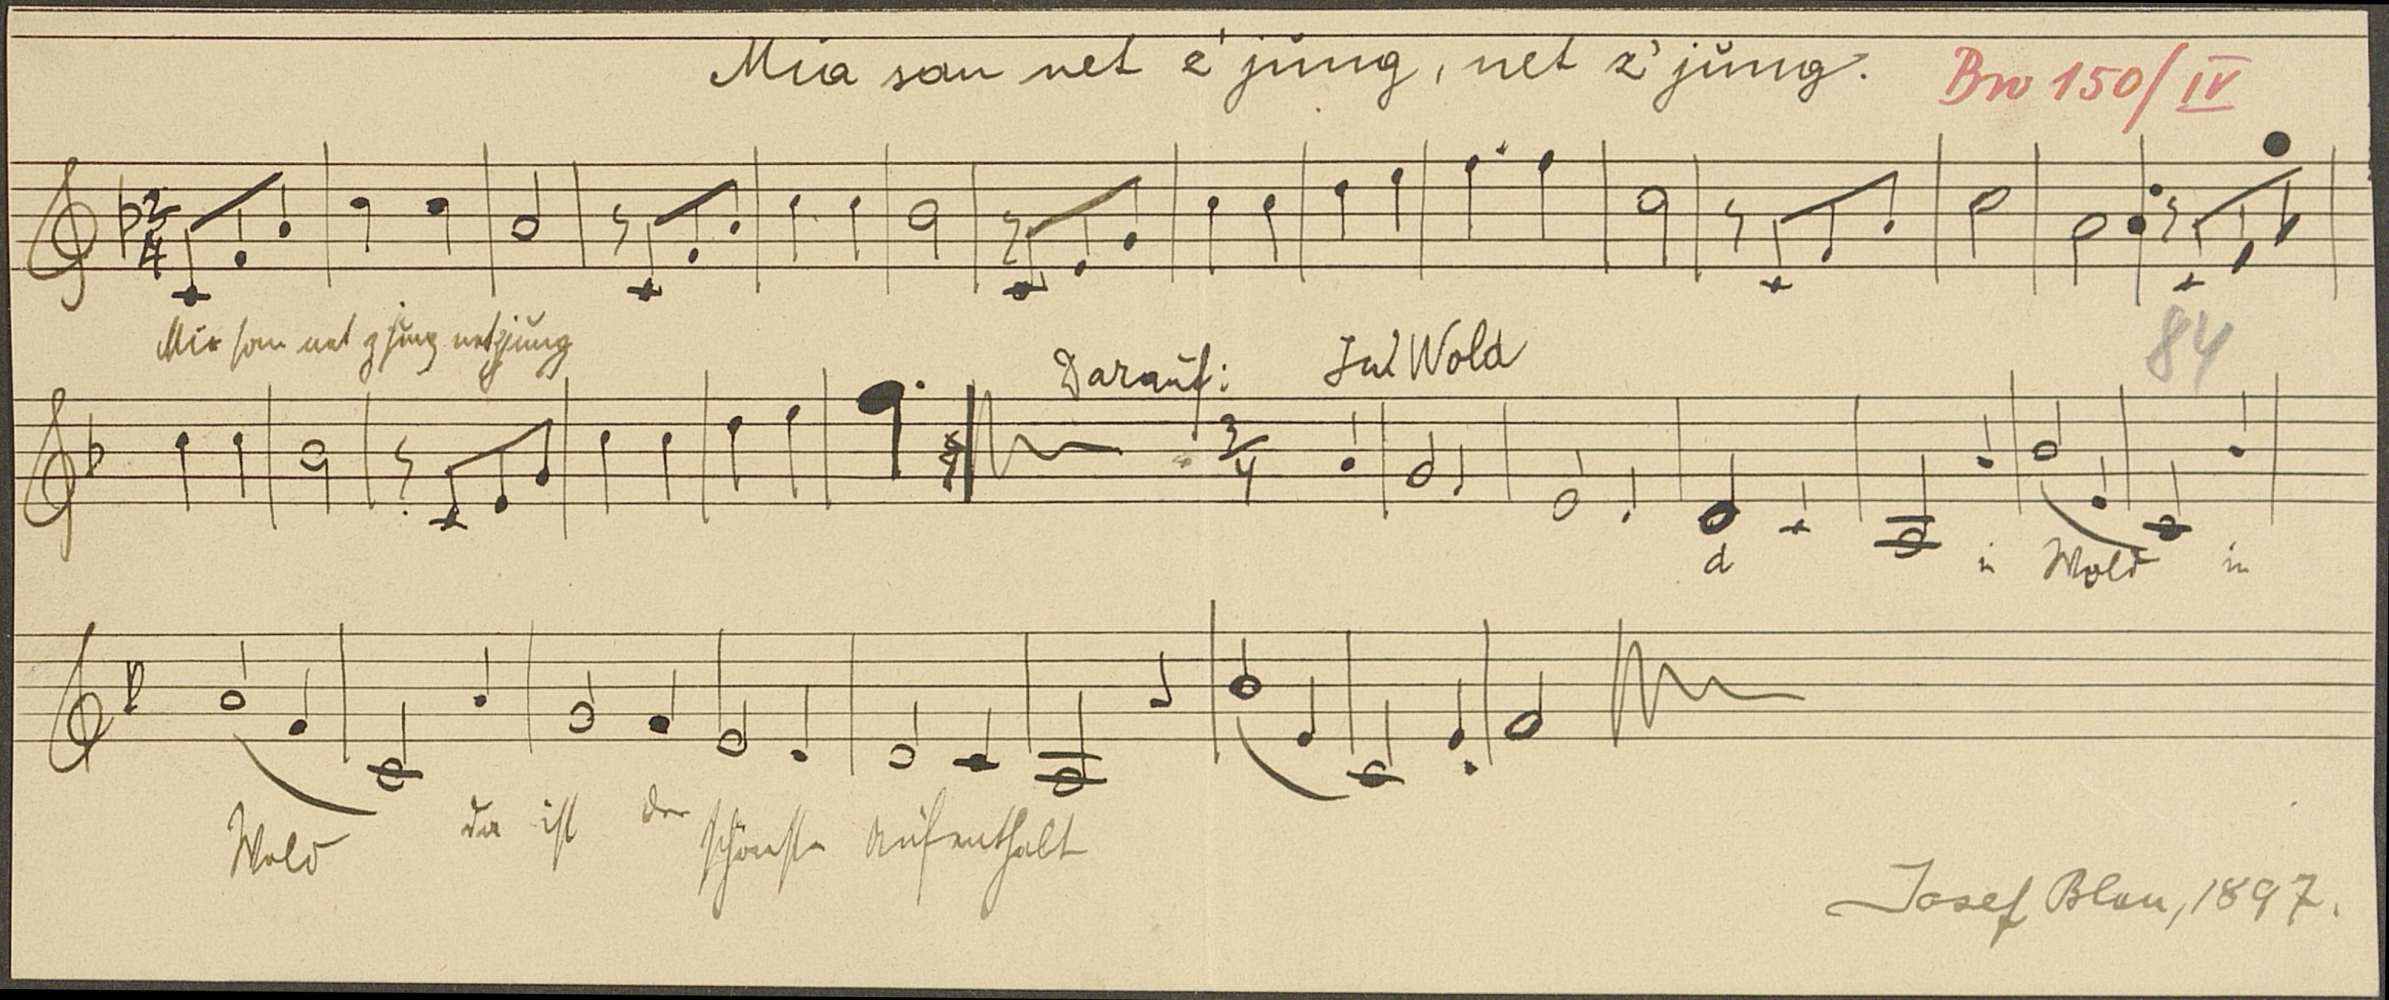 Mia san net z'jŭng, net z'jŭng.
Bro 150/IV
2/4
Mia san net z jŭng net z jŭng
84
Darauf: In'Wold
3/4
d in Wold in
Wold da ist der schönste Aufenthalt
Josef Blau, 1897.